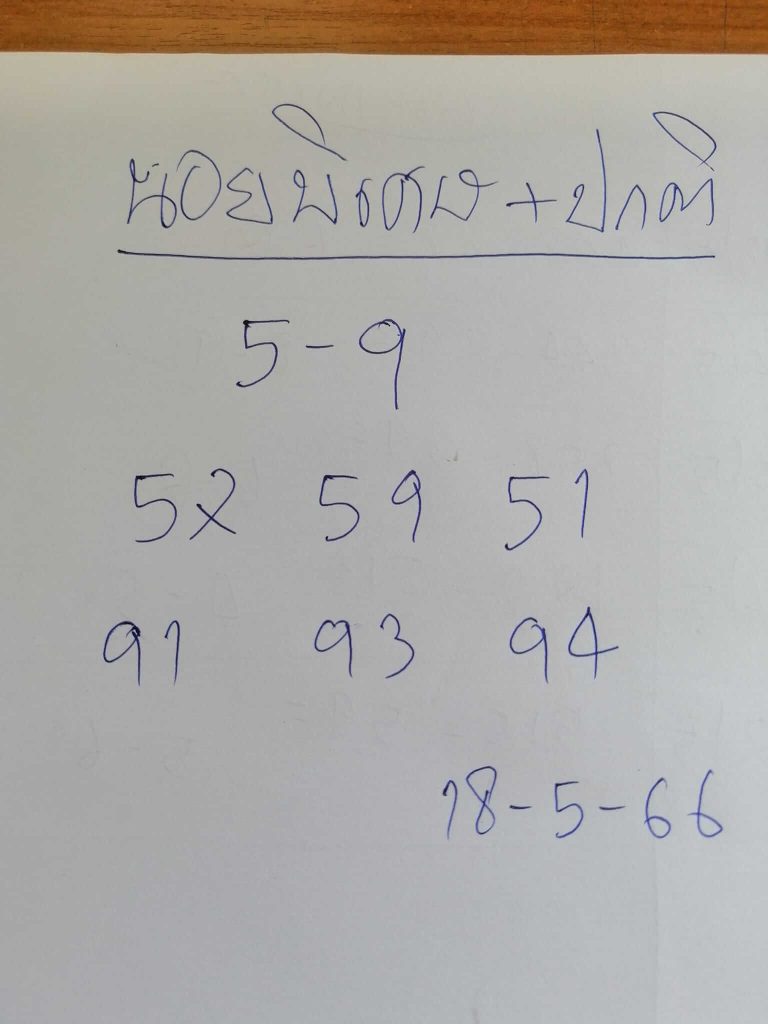 นอยพิเศษ+ปกติ
5-9
52 59 51
91 93 94
18-5-66